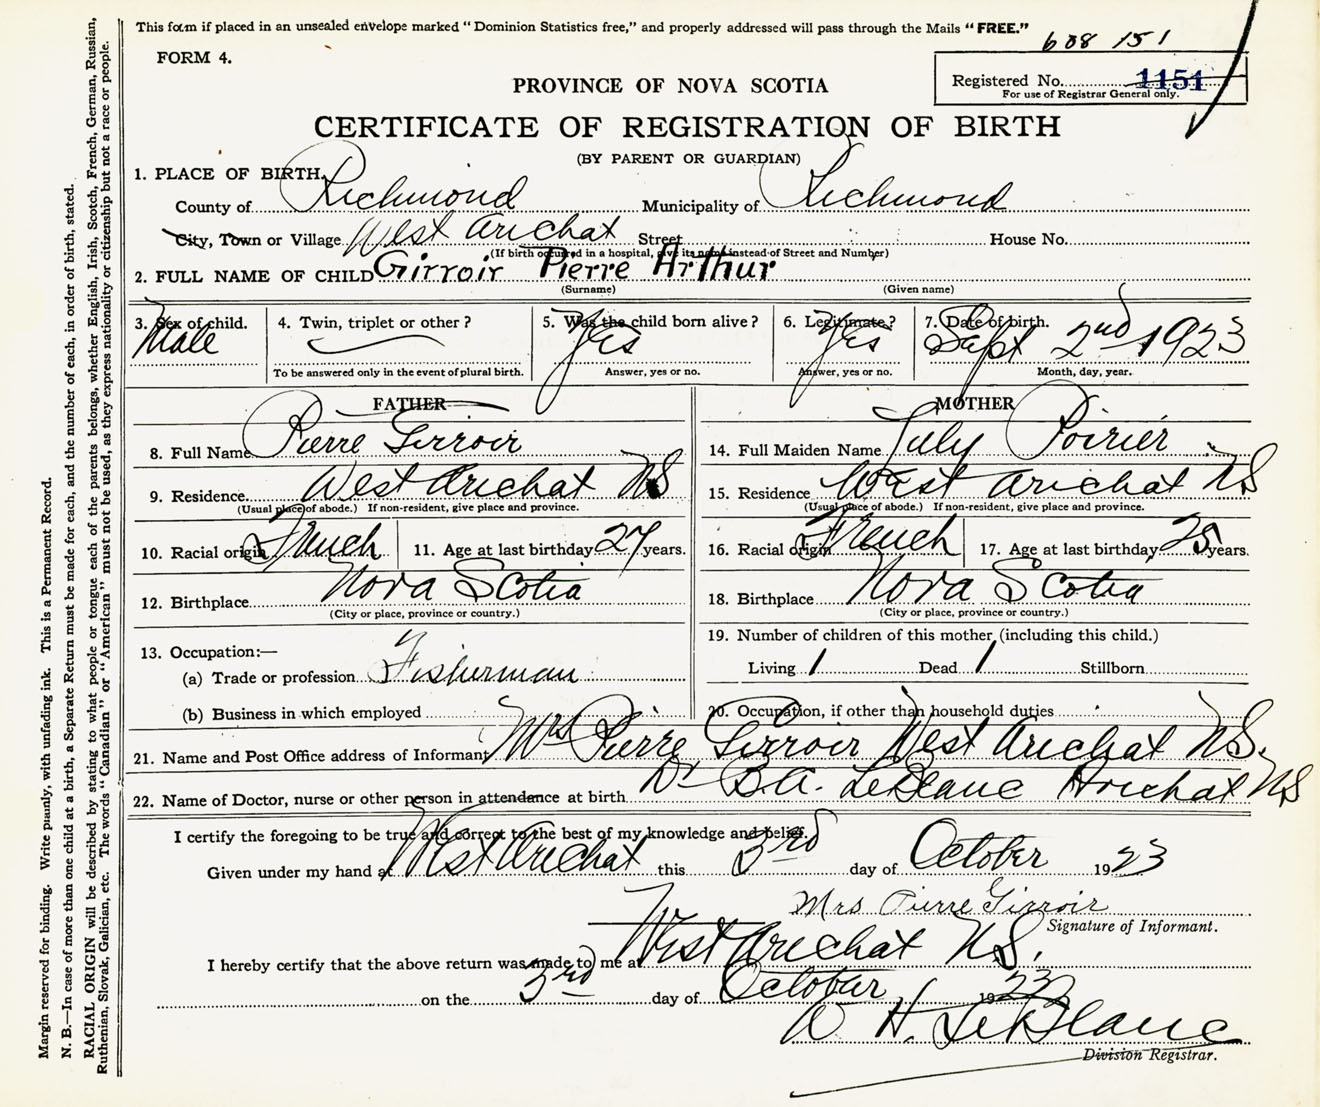 This form if placed in an unsealed envelope marked "Dominion Statistics free," and properly addressed will pass through the Mails "FREE."
608 151
FORM 4.
Registered No. 1151
For use of Registrar General only.
PROVINCE OF NOVA SCOTIA
CERTIFICATE OF REGISTRATION OF BIRTH
(BY PARENT OR GUARDIAN)
1. PLACE OF BIRTH.
County of Richmond Municipality of Richmond
City, Town or Village West Arichat Street House No.
(If birth occurred in a hospital, give its name instead of Street and Number)
2. FULL NAME OF CHILD Girroir Pierre Arthur
(Surname) (Given name)
3. Sex of child. 4. Twin, triplet or other? 5. Was the child born alive? 6. Legitimate? 7. Date of birth.
Male Yes Yes Sept 2nd 1923
To be answered only in the event of plural birth. Answer, yes or no. Answer, yes or no. Month, day, year.
FATHER MOTHER
8. Full Name Pierre Girroir 14. Full Maiden Name July Poirier
9. Residence West Arichat NS 15. Residence West Arichat NS
(Usual place of abode.) If non-resident, give place and province. (Usual place of abode.) If non-resident, give place and province.
10. Racial origin French 11. Age at last birthday 27 years. 16. Racial origin French 17. Age at last birthday 25 years.
12. Birthplace Nova Scotia 18. Birthplace Nova Scotia
(City or place, province or country.) (City or place, province or country.)
13. Occupation:— 19. Number of children of this mother (including this child.)
(a) Trade or profession Fisherman Living 1 Dead 1 Stillborn
(b) Business in which employed 20. Occupation, if other than household duties
21. Name and Post Office address of Informant Mrs Pierre Girroir West Arichat NS.
22. Name of Doctor, nurse or other person in attendance at birth Dr B.A. LeBlanc Arichat NS
I certify the foregoing to be true and correct to the best of my knowledge and belief.
Given under my hand at West Arichat this 3rd day of October 1923
Mrs Pierre Girroir
Signature of Informant.
I hereby certify that the above return was made to me at West Arichat NS.
on the 3rd day of October 1923
W H LeBlanc
Division Registrar.
Margin reserved for binding. Write plainly, with unfading ink. This is a Permanent Record.
N. B.—In case of more than one child at a birth, a Separate Return must be made for each, and the number of each, in order of birth, stated.
RACIAL ORIGIN will be described by stating to what people or tongue each of the parents belongs, whether English, Irish, Scotch, French, German, Russian,
Ruthenian, Slovak, Galician, etc. The words "Canadian" or "American" must not be used, as they express nationality or citizenship but not a race or people.